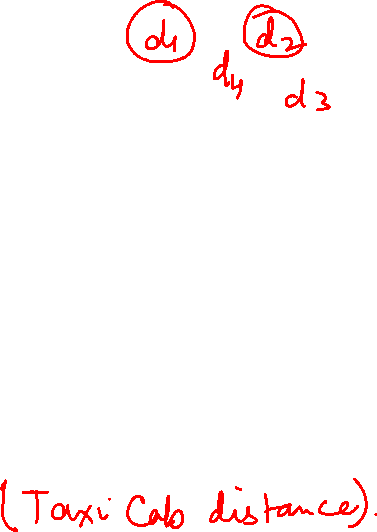 d1 d2
d4 d3
(Taxi Cab distance).